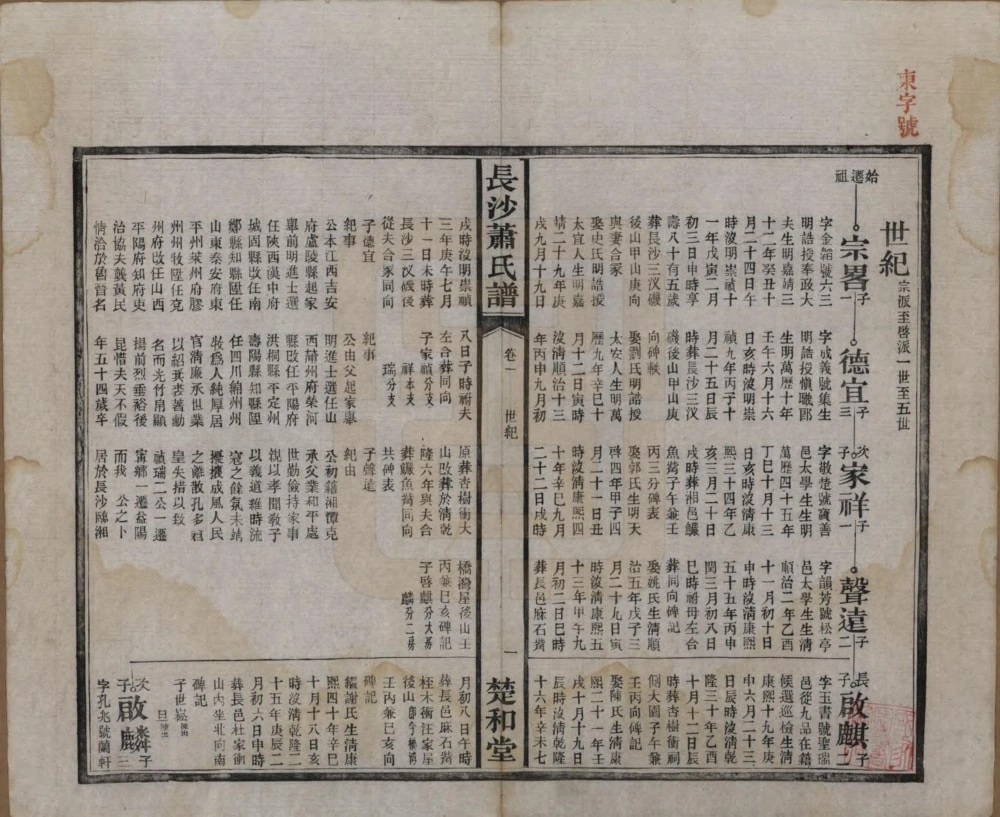 東字號
世紀 宗派至啓派一世至五世
始遷祖
宗畧 子一
字金詔號六三
明誥授奉政大
夫生明嘉靖三
十二年癸丑十
月二十四日午
時沒明崇禎十
一年戊寅二月
初三日申時享
壽八十有五歲
葬長沙三汊磯
後山甲山庚向
與妻合冢
娶史氏明誥授
太宜人生明嘉
靖二十九年庚
戌九月十九日
戌時沒明崇禎
三年庚午七月
十一日未時葬
長沙三汊磯後
從夫合冢同向
子德宜
紀事
公本江西吉安
府盧陵縣起家
舉前明進士選
任陝西漢中府
城固縣改任南
鄭縣知縣陞任
山東泰安府東
平州萊州府膠
州州牧陞任兗
州府改任山西
平陽府知府吏
治協夫襲黃民
情洽於魯首名
德宜 子三
字成義號集生
明誥授慎職郎
生明萬歷十年
壬午六月十六
日亥時沒明崇
禎九年丙子十
月二十五日辰
時葬長沙三汊
磯後山甲山庚
向碑軼
娶劉氏明誥授
太安人生明萬
歷九年辛巳十
月十二日寅時
沒清順治十三
年丙申九月初
八日子時祔夫
左合葬同向
子家禎分支
祥本支
瑞分支
紀事
公由父起家舉
明進士選任山
西蒲州府榮河
縣改任平陽府
洪桐縣平定州
壽陽縣知縣陞
任四川綿州州
牧爲人純厚居
官清廉承世業
以紹箕裘著勳
名而光竹帛顯
揚前烈垂裕後
昆惜夫天不假
年五十四歲卒
次子 家祥 子一
字敬楚號寶善
邑太學生生明
萬歷四十五年
丁巳十月十三
日亥時沒清康
熙三十四年乙
亥三月二十日
戌時葬湘邑鱺
魚觜子午兼壬
丙三分碑表
娶郭氏生明天
啓四年甲子四
月二十一日丑
時沒清康熙四
十年辛巳九月
二十二日戌時
原葬杏樹衝大
山改葬於清乾
隆六年與夫合
葬鱺魚觜同向
共碑表
子聲達
紀由
公初籍湘潭克
承父業和平處
世勤儉持家事
親以孝聞敎子
以義道雖時流
寇之餘氛未靖
擾攘成風人民
之離散孔多祖
皇失措以致
禎瑞二公一遷
寗鄉一遷益陽
而我　公之卜
居於長沙臨湘
聲達 子二
字韻芳號松亭
邑太學生生清
順治二年乙酉
十一月初十日
申時沒清康熙
五十五年丙申
閏三月初八日
巳時祔母左合
葬同向碑記
娶姚氏生清順
治五年戊子三
月二十九日寅
時沒清康熙五
十三年甲午九
月初二日巳時
葬長邑麻石觜
橋灣屋後山壬
丙兼巳亥碑記
子啓麒分大房
麟分二房
長子 啟麒 子二
字玉書號聖瑞
邑從九品在籍
候選巡檢生清
康熙十九年庚
申六月二十三
日辰時沒清乾
隆三十年乙酉
十月十二日辰
時葬杏樹衝罰
側大園子午兼
壬丙向碑記
娶陳氏生清康
熙二十一年壬
戌十月十九日
辰時沒清乾隆
十六年辛未七
月初八日午時
葬長邑麻石觜
栢木衝汪家屋
後山
壬丙兼巳亥向
碑記
繼謝氏生清康
熙四十年辛巳
十月十八日亥
時沒清乾隆二
十五年庚辰二
月初六日申時
葬長邑杜家衝
山內坐北向南
碑記
子世崧 陳出
旦 陳出
次子 啟麟 子三
字孔兆號蘭軒
長沙蕭氏譜
卷一
世紀
一
楚和堂